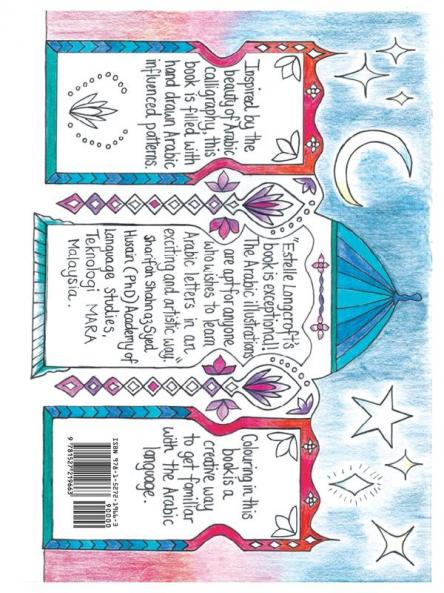 Inspired by the
beauty of Arabic
calligraphy, this
book is filled with
hand drawn Arabic
influenced patterns.
"Estelle Longcroft's
book is exceptional!
The Arabic illustrations
are apt for anyone
who wishes to learn
Arabic letters in an
exciting and artistic way."
Sharifah Shahnaz Syed
Husain (PhD) Academy of
Language Studies,
Teknologi MARA
Malaysia.
Colouring in this
book is a
creative way
to get familiar
with the Arabic
language.
ISBN 978-1-5272-1966-3
90000
9 781527 219663